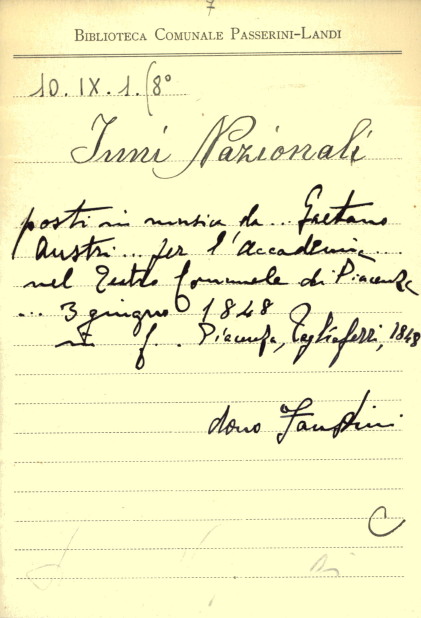 7
BIBLIOTECA COMUNALE PASSERINI-LANDI
10. IX. 1. (8°
Inni Nazionali
posti in musica da ... Gaetano
Austri ... per l'accademia ...
nel Teatro Comunale di Piacenza
... 3 giugno 1848
f. . Piacenza, Tagliaferri, 1848
dono
C